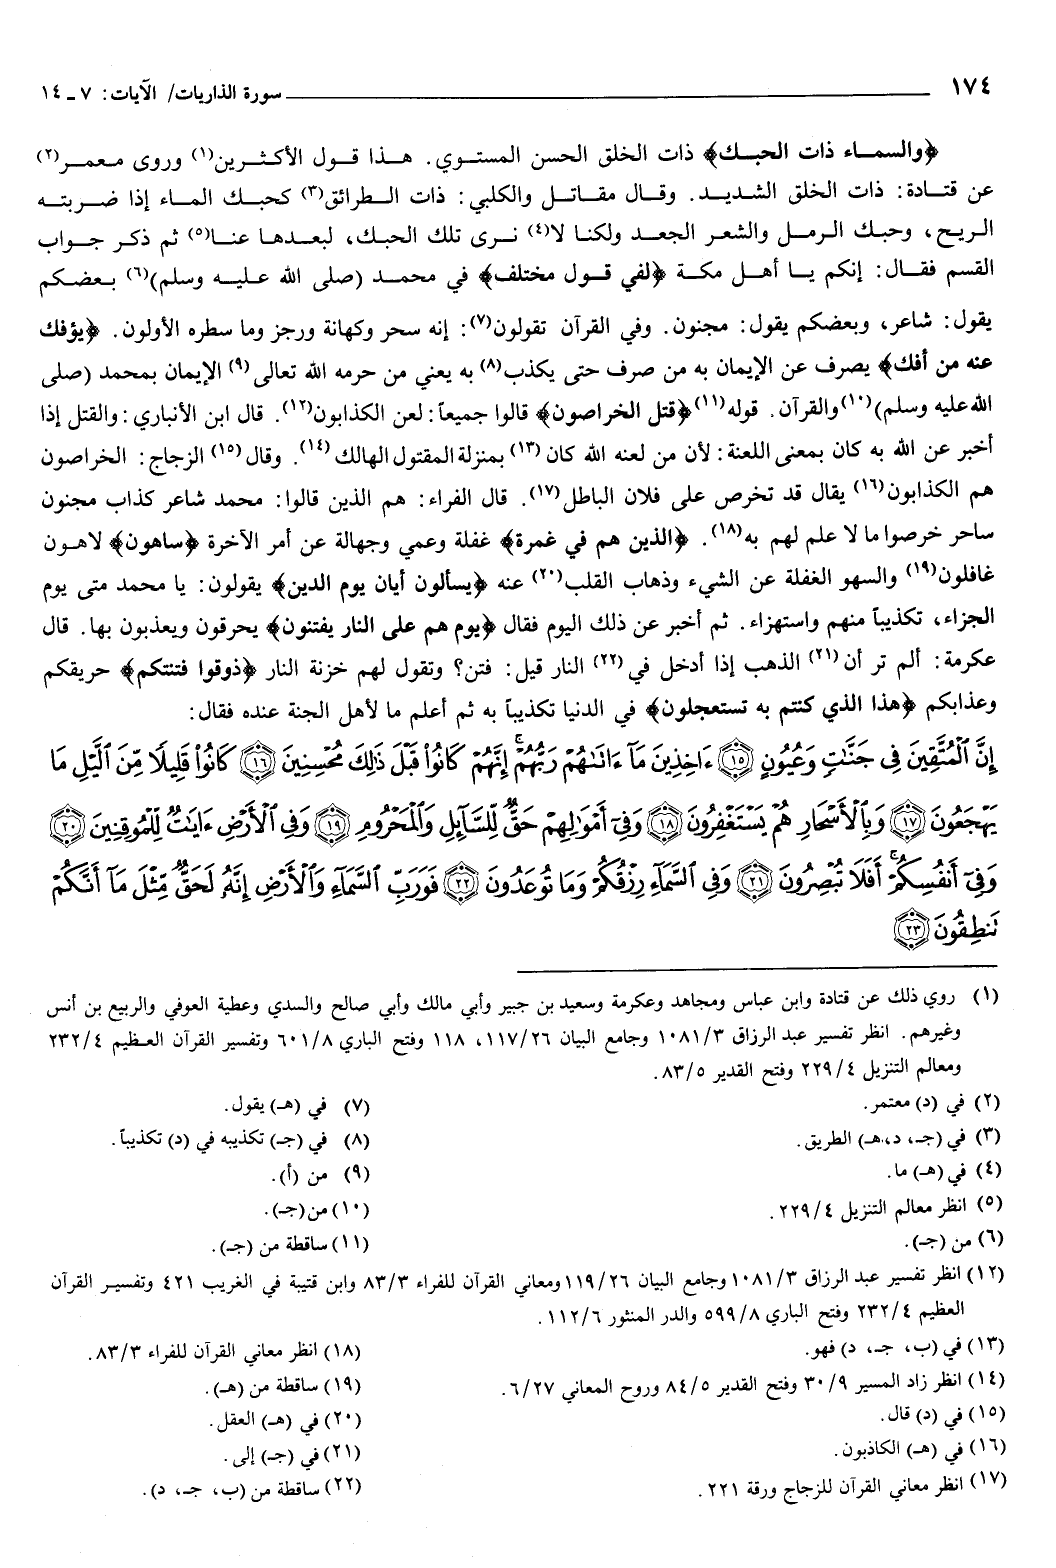 ١٧٤ سورة الذاريات/ الآيات: ٧ ـ ١٤
﴿والسماء ذات الحبك﴾ ذات الخلق الحسن المستوي. هذا قول الأكثرين(١) وروى معمر(٢)
عن قتادة: ذات الخلق الشديد. وقال مقاتل والكلبي: ذات الطرائق(٣) كحبك الماء إذا ضربته
الريح، وحبك الرمل والشعر الجعد ولكنا لا(٤) نرى تلك الحبك، لبعدها عنا(٥) ثم ذكر جواب
القسم فقال: إنكم يا أهل مكة ﴿لفي قول مختلف﴾ في محمد (صلى الله عليه وسلم)(٦) بعضكم
يقول: شاعر، وبعضكم يقول: مجنون. وفي القرآن تقولون(٧): إنه سحر وكهانة ورجز وما سطره الأولون. ﴿يؤفك
عنه من أفك﴾ يصرف عن الإيمان به من صرف حتى يكذب(٨) به يعني من حرمه الله تعالى(٩) الإيمان بمحمد (صلى
الله عليه وسلم)(١٠) والقرآن. قوله(١١) ﴿قتل الخراصون﴾ قالوا جميعاً: لعن الكذابون(١٢). قال ابن الأنباري: والقتل إذا
أخبر عن الله به كان بمعنى اللعنة: لأن من لعنه الله كان(١٣) بمنزلة المقتول الهالك(١٤). وقال(١٥) الزجاج: الخراصون
هم الكذابون(١٦) يقال قد تخرص على فلان الباطل(١٧). قال الفراء: هم الذين قالوا: محمد شاعر كذاب مجنون
ساحر خرصوا ما لا علم لهم به(١٨). ﴿الذين هم في غمرة﴾ غفلة وعمي وجهالة عن أمر الآخرة ﴿ساهون﴾ لاهون
غافلون(١٩) والسهو الغفلة عن الشيء وذهاب القلب(٢٠) عنه ﴿يسألون أيان يوم الدين﴾ يقولون: يا محمد متى يوم
الجزاء، تكذيباً منهم واستهزاء. ثم أخبر عن ذلك اليوم فقال ﴿يوم هم على النار يفتنون﴾ يحرقون ويعذبون بها. قال
عكرمة: ألم تر أن(٢١) الذهب إذا أدخل في(٢٢) النار قيل: فتن؟ وتقول لهم خزنة النار ﴿ذوقوا فتنتكم﴾ حريقكم
وعذابكم ﴿هذا الذي كنتم به تستعجلون﴾ في الدنيا تكذيباً به ثم أعلم ما لأهل الجنة عنده فقال:
إِنَّ ٱلْمُتَّقِينَ فِى جَنَّٰتٍ وَعُيُونٍ ١٥ ءَاخِذِينَ مَآ ءَاتَىٰهُمْ رَبُّهُمْ ۚ إِنَّهُمْ كَانُوا۟ قَبْلَ ذَٰلِكَ مُحْسِنِينَ ١٦ كَانُوا۟ قَلِيلًا مِّنَ ٱلَّيْلِ مَا
يَهْجَعُونَ ١٧ وَبِٱلْأَسْحَارِ هُمْ يَسْتَغْفِرُونَ ١٨ وَفِىٓ أَمْوَٰلِهِمْ حَقٌّ لِّلسَّآئِلِ وَٱلْمَحْرُومِ ١٩ وَفِى ٱلْأَرْضِ ءَايَٰتٌ لِّلْمُوقِنِينَ ٢٠
وَفِىٓ أَنفُسِكُمْ ۚ أَفَلَا تُبْصِرُونَ ٢١ وَفِى ٱلسَّمَآءِ رِزْقُكُمْ وَمَا تُوعَدُونَ ٢٢ فَوَرَبِّ ٱلسَّمَآءِ وَٱلْأَرْضِ إِنَّهُۥ لَحَقٌّ مِّثْلَ مَآ أَنَّكُمْ
تَنطِقُونَ ٢٣
(١) روي ذلك عن قتادة وابن عباس ومجاهد وعكرمة وسعيد بن جبير وأبي مالك وأبي صالح والسدي وعطية العوفي والربيع بن أنس
وغيرهم. انظر تفسير عبد الرزاق ١٠٨١/٣ وجامع البيان ١١٧/٢٦، ١١٨ وفتح الباري ٦٠١/٨ وتفسير القرآن العظيم ٢٣٢/٤
ومعالم التنزيل ٢٢٩/٤ وفتح القدير ٨٣/٥.
(٢) في (د) معتمر. (٧) في (هـ) يقول.
(٣) في (جـ، د، هـ) الطريق. (٨) في (جـ) تكذيبه في (د) تكذيباً.
(٤) في (هـ) ما. (٩) من (أ).
(٥) انظر معالم التنزيل ٢٢٩/٤. (١٠) من (جـ).
(٦) من (جـ). (١١) ساقطة من (جـ).
(١٢) انظر تفسير عبد الرزاق ١٠٨١/٣ وجامع البيان ١١٩/٢٦ ومعاني القرآن للفراء ٨٣/٣ وابن قتيبة في الغريب ٤٢١ وتفسير القرآن
العظيم ٢٣٢/٤ وفتح الباري ٥٩٩/٨ والدر المنثور ١١٢/٦.
(١٣) في (ب، جـ، د) فهو. (١٨) انظر معاني القرآن للفراء ٨٣/٣.
(١٤) انظر زاد المسير ٣٠/٩ وفتح القدير ٨٤/٥ وروح المعاني ٦/٢٧. (١٩) ساقطة من (هـ).
(١٥) في (د) قال. (٢٠) في (هـ) العقل.
(١٦) في (هـ) الكاذبون. (٢١) في (جـ) إلى.
(١٧) انظر معاني القرآن للزجاج ورقة ٢٢١. (٢٢) ساقطة من (ب، جـ، د).